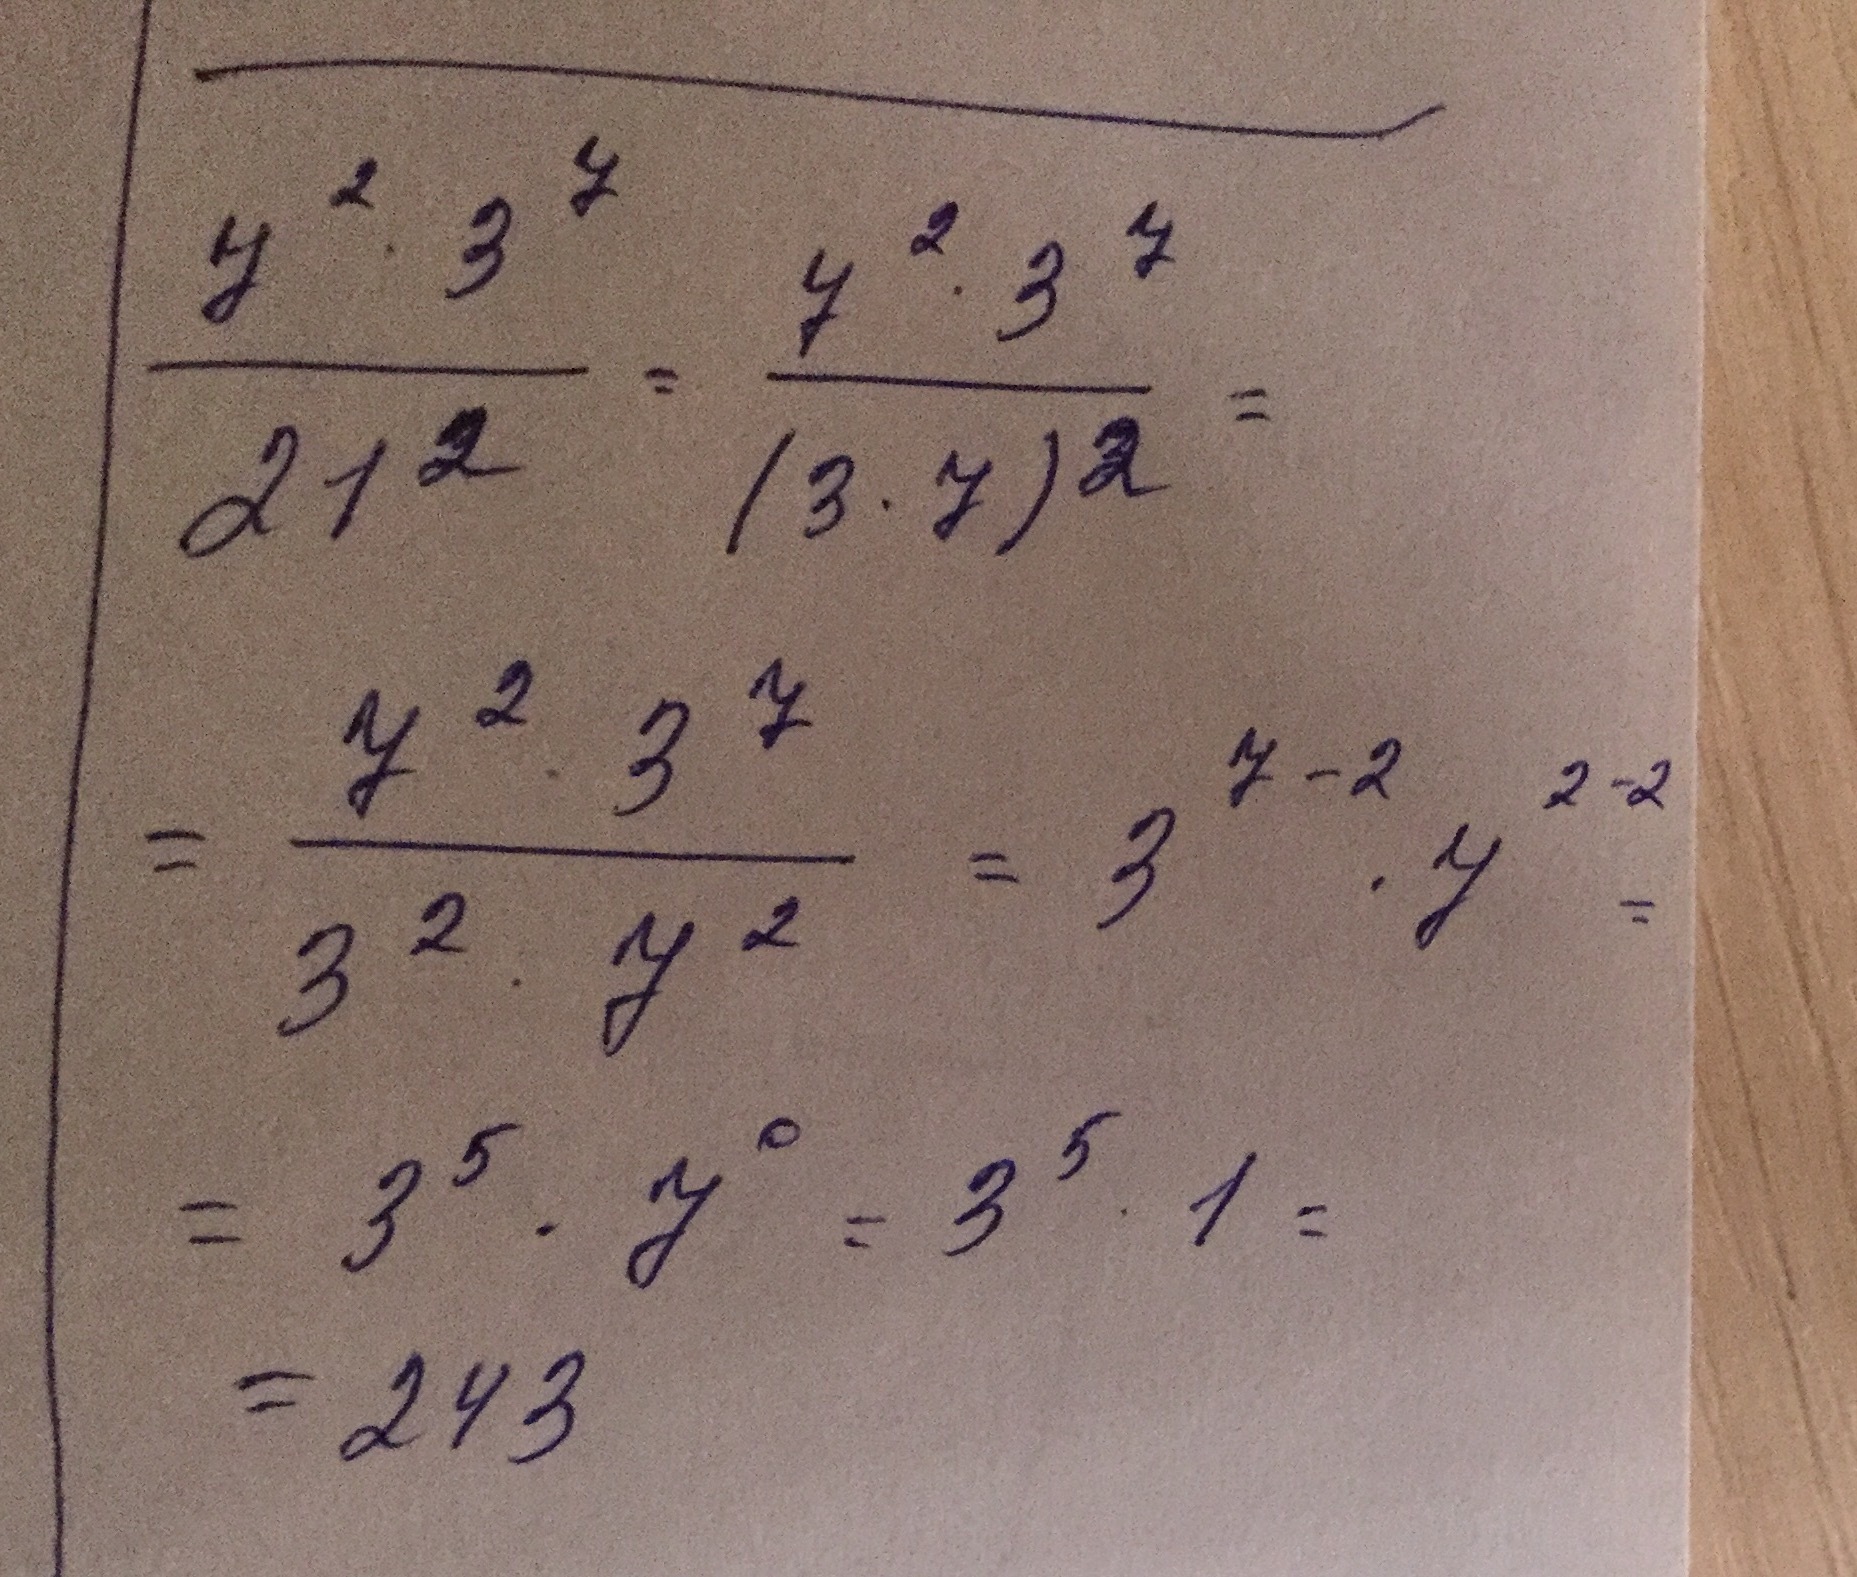 7² · 3⁷ / 21² = 7² · 3⁷ / (3 · 7)² =
= 7² · 3⁷ / 3² · 7² = 3⁷⁻² · 7²⁻² =
= 3⁵ · 7⁰ = 3⁵ · 1 =
= 243